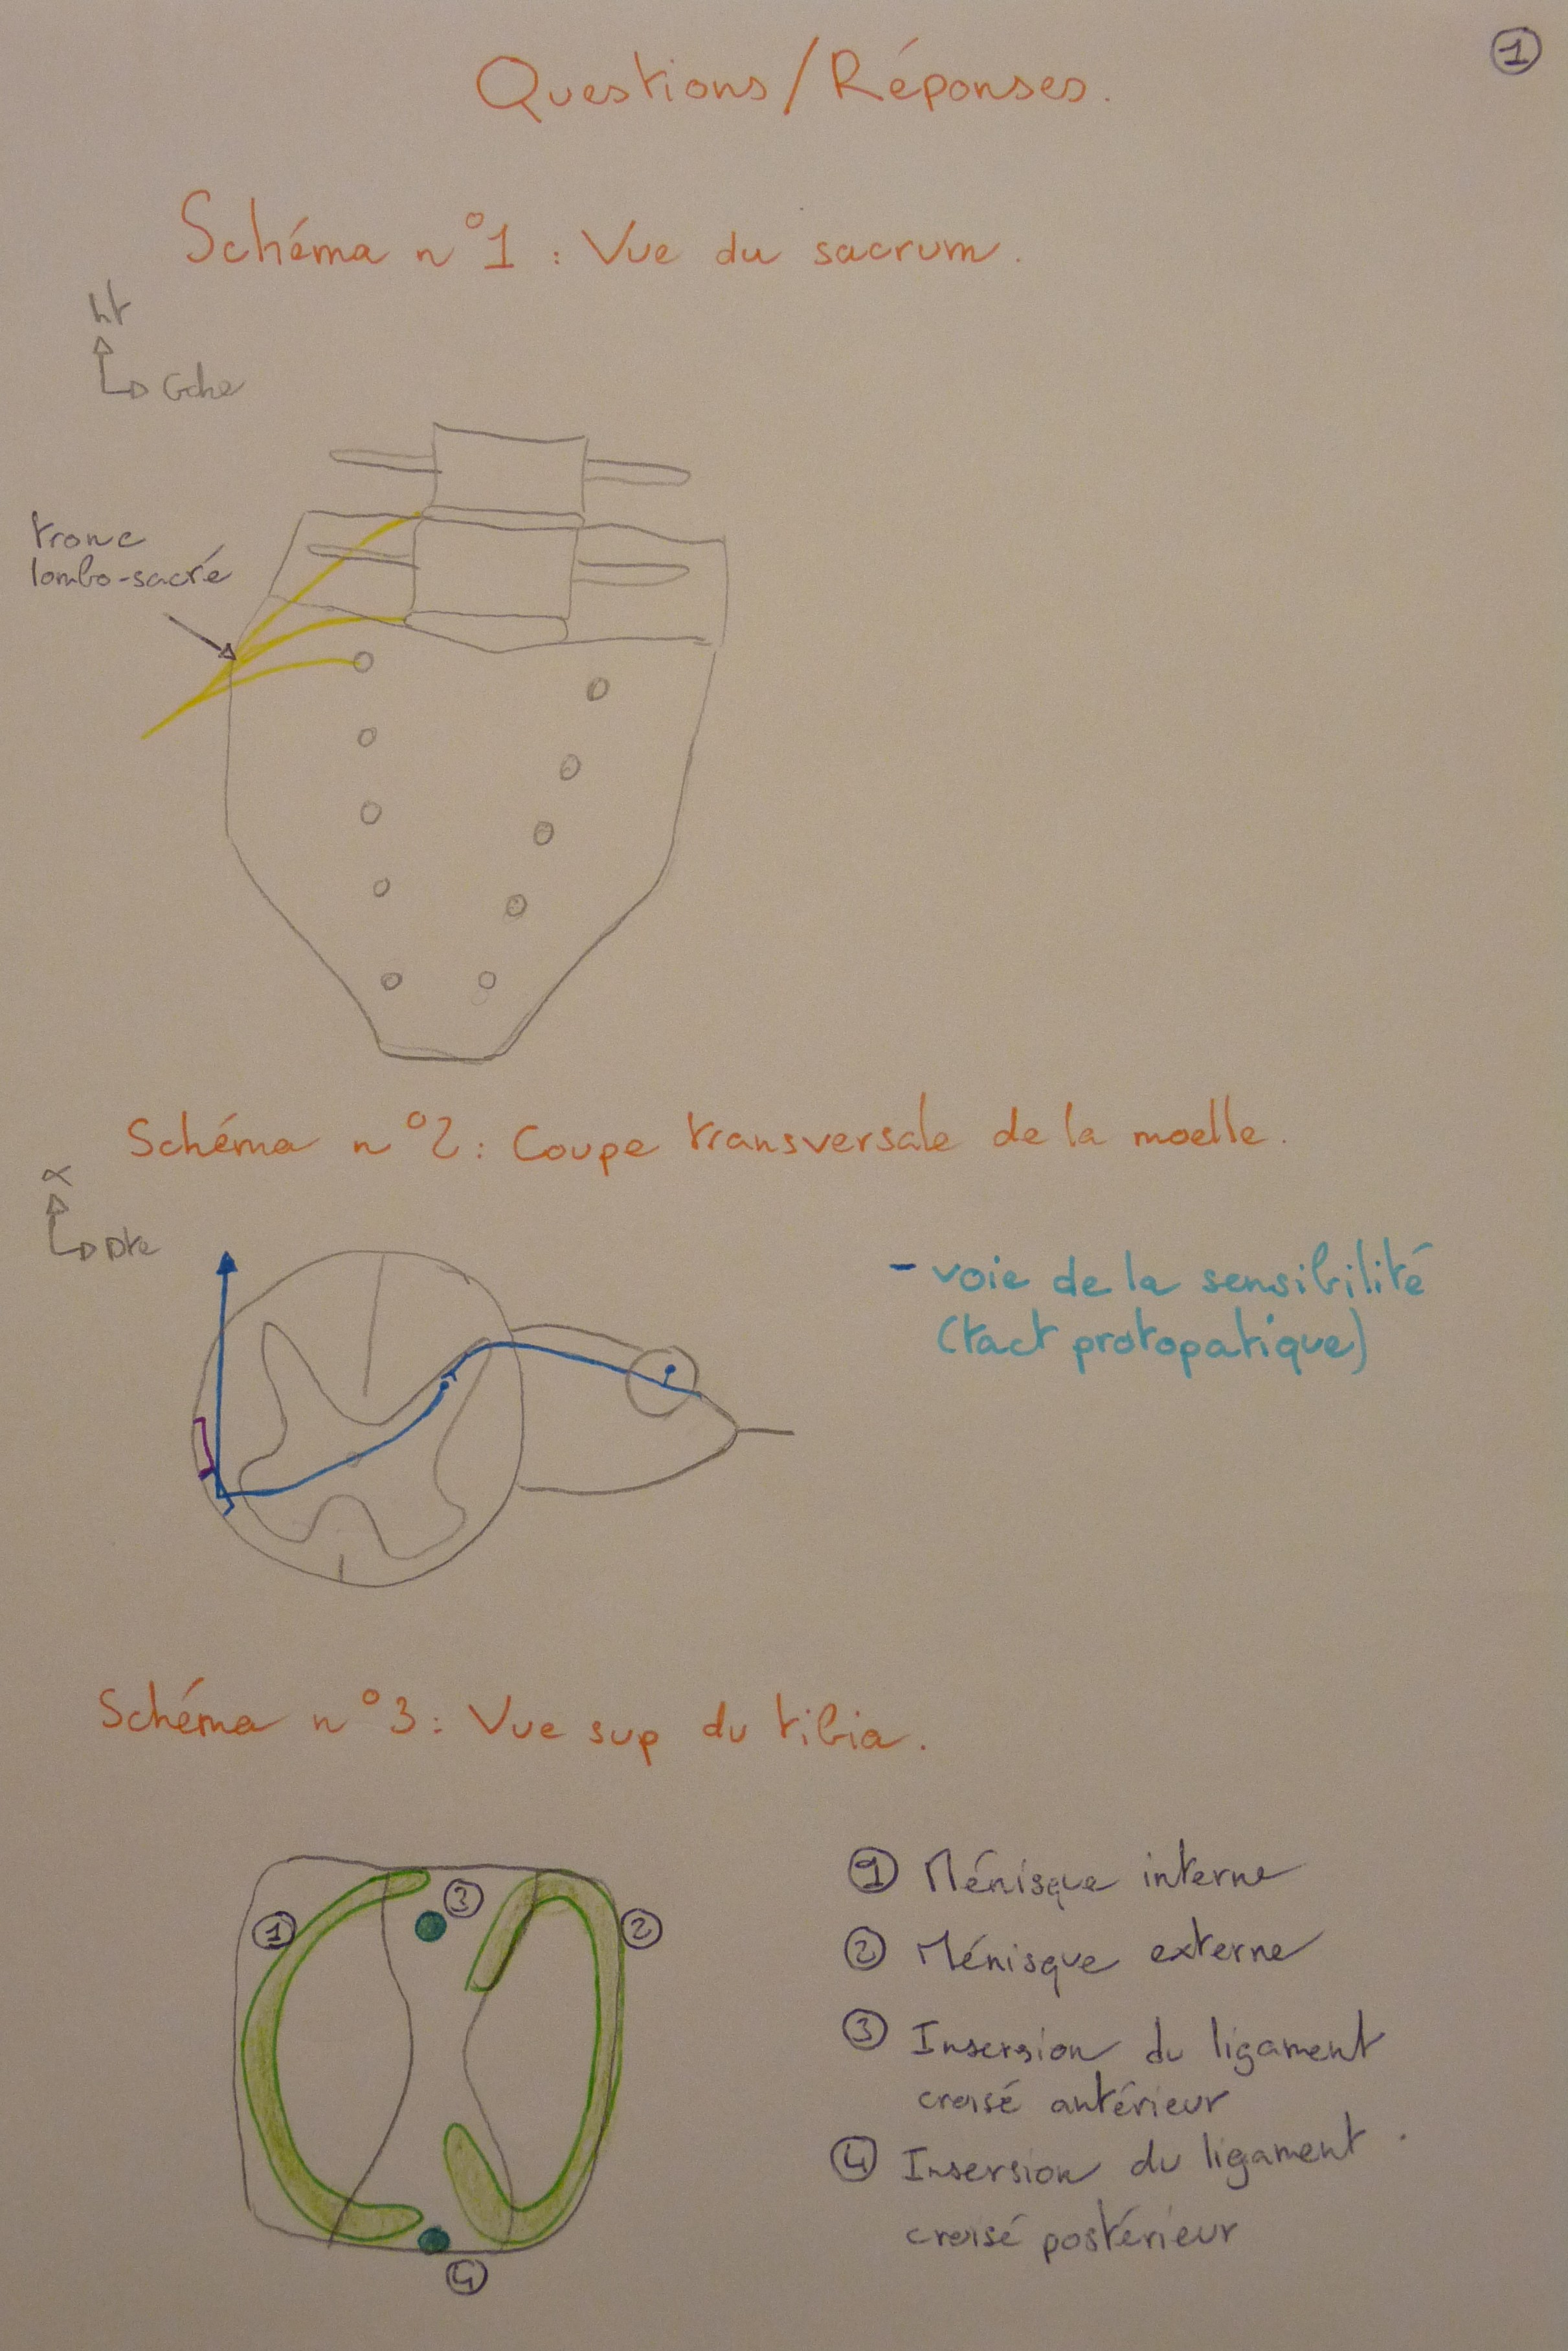 Questions/Réponses.
1
Schéma n°1 : Vue du sacrum.
ht
Gche
tronc
lombo-sacré
Schéma n°2 : Coupe transversale de la moelle.
Dte
- voie de la sensibilité
(tact protopatique)
Schéma n°3 : Vue sup du tibia.
1
3
2
4
1 Ménisque interne
2 Ménisque externe
3 Insersion du ligament
croisé antérieur
4 Insersion du ligament
croisé postérieur